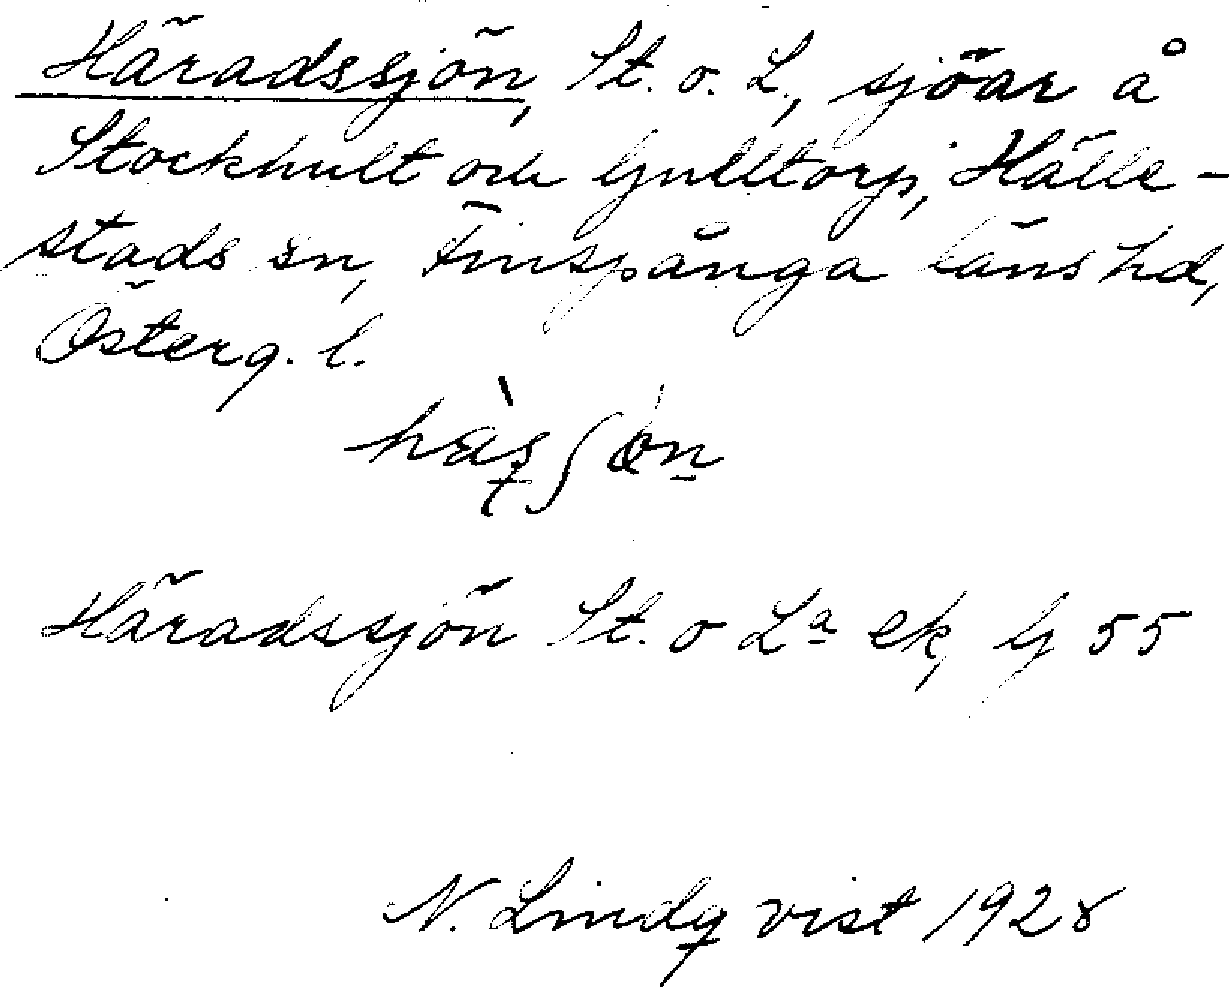 Häradssjön, St. o. L., sjöar å
Stockhult och Gulltorp, Hälle-
stads sn, Finspånga läns hd,
Österg. l.
Häradssjön St. o La ek, G 55
N. Lindqvist 1928